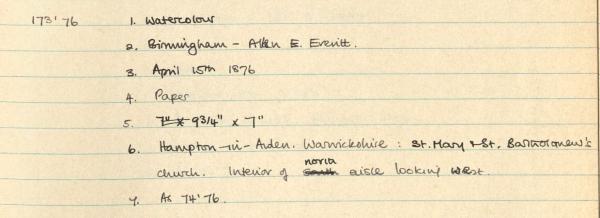 173'76 1. Watercolour
2. Birmingham - Allen E. Everitt.
3. April 15th 1876
4. Paper
5. 7" x 9 3/4" x 7"
6. Hampton-in-Arden. Warwickshire : St. Mary & St. Bartholomew's
church. Interior of south north aisle looking west.
7. As 74'76.